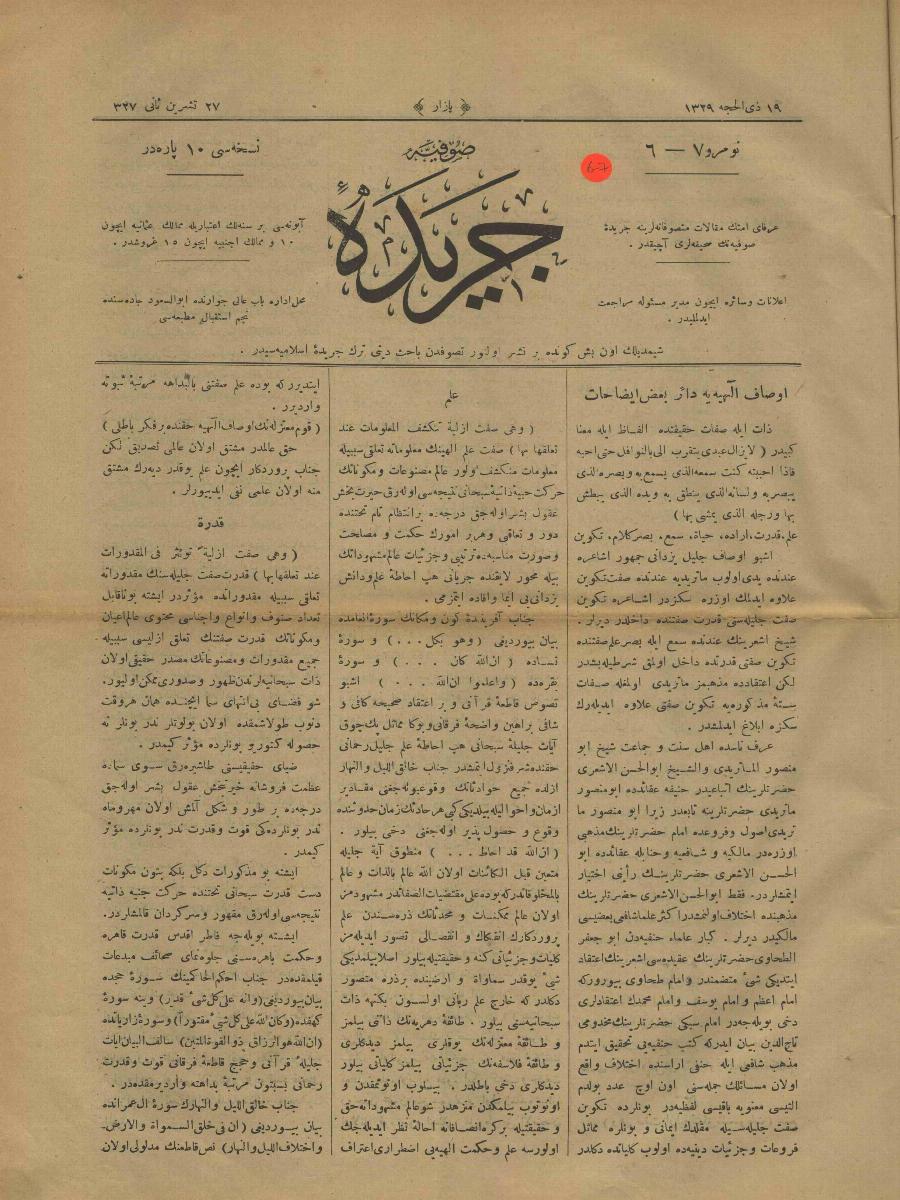 ١٩ ذی الحجه ١٣٢٩
﴿ بازار ﴾
٢٧ تشرین ثانی ٣٢٧
نومرو ٧ — ٦
6-7
صوفیه
جریدهٔ
نسخه‌سی ١٠ پاره‌در
عرفای امتك مقالات متصوفانه‌لرینه جریدهٔ
صوفیه‌نك صحیفه‌لری آچیقدر .
اعلانات وسائره ایچون مدیر مسئوله مراجعت
ایدلملیدر .
آبونه‌سی بر سنه‌لك اعتباریله ممالك عثمانیه ایچون
١٠ و ممالك اجنبیه ایچون ١٥ غروشدر .
محل اداره باب عالی جوارنده ابوالسعود جاده‌سنده
نجم استقبال مطبعه‌سی
شیمدیلك اون بش کونده بر نشر اولنور تصوفدن باحث دینی ترك جریدهٔ اسلامیه‌سیدر .
اوصاف الهیه‌یه دائر بعض ایضاحات
ذات ایله صفات حقیقتده الفاظ ایله معنا
کبیدر ( لایزال عبدی یتقرب الی بالنوافل حتی احبه
فاذا احببته کنت سمعه الذی یسمع به وبصره الذی
یبصر به ولسانه الذی ینطق به ویده الذی یبطش
بها ورجله الذی یمشی بها )
علم، قدرت، اراده، حیاة، سمع، بصر کلام، تکوین
اشبو اوصاف جلیل یزدانی جمهور اشاعره
عندنده یدی اولوب ماتریدیه عندنده صفت تکوین
علاوه ایدلمك اوزره سکزدر اشاعره تکوین
صفت جلیله‌سنی قدرت صفتنده داخلدر دیرلر .
شیخ اشعرینك عندنده سمع ایله بصر علم صفتنده
تکوین صفتی قدرتده داخل اولمق شرطیله بشدر
لکن اعتقادده مذهبمز ماتریدی اولمغله صفات
ستهٔ مذکوره‌یه تکوین صفتی علاوه ایدیله‌رك
سکزه ابلاغ ایدلمشدر .
عرف ناسده اهل سنت و جماعت شیخ ابو
منصور الماتریدی والشیخ ابوالحسن الاشعری
حضرتلرینك اتباعیدر حنیفه عقائدده ابو منصور
ماتریدی حضرتلرینه تابعدر زیرا ابو منصور ما
تریدی اصول و فروعده امام حضرتلرینك مذهبی
اوزره‌در مالکیه و شافعیه و حنابله عقائدده ابو
الحسن الاشعری حضرتلرینك رأینی اختیار
ایتمشلردر . فقط ابوالحسن الاشعری حضرتلرینك
مذهبنده اختلاف اولنمشدر اکثر علما شافعی بعضیسی
مالکیدر دیرلر . کبار علماء حنفیه‌دن ابو جعفر
الطحاوی حضرتلرینك عقیده‌سی اشعرینك اعتقاد
ایتدیکی شئ متضمندر و امام طحاوی بیورورکه
امام اعظم و امام یوسف و امام محمدك اعتقادلری
دخی بویله‌جه‌در امام سبکی حضرتلرینك مخدومی
تاج‌الدین بیان ایدرکه کتب حنفیه‌یی تحقیق ایتدم
مذهب شافعی ایله حنفی اراسنده اختلاف واقع
اولان مسائلك جمله‌سنی اون اوچ عدد بولدم
التیسی معنویه باقیسی لفظیه‌در بونلرده تکوین
صفت جلیله‌سیله مقلدك ایمانی و بونلره مماثل
فروعات و جزئیات دینیه‌ده اولوب کلیاتده دکلدر
علم
( وهی صفت ازلیة تنکشف المعلومات عند
تعلقها بها ) صفت علم الهینك معلوماته تعلقی سببیله
معلومات منکشف اولور عالم مصنوعات و مکوناتك
حرکت حبیهٔ ذاتیهٔ سبحانی نتیجه‌سی اوله‌رق حیرت‌بخش
عقول بشر اوله‌جق درجه‌ده بر انتظام تام تحتنده
دور و تعاقبی و هر بر امورك حکمت و مصلحت
وصورت مناسبه‌ده ترتیبی و جزئیات عالم مشهوداتك
بیله محور لایقنده جریانی هپ احاطهٔ علم و دانش
یزدانی‌یی ایما و افاده ایتمزمی .
جناب آفرینندهٔ کون و مکانك سورهٔ انعامده
بیان بیوردیغی ( وهو بکل ... ) و سورهٔ
نساده ( ان الله کان ... ) و سورهٔ
بقره‌ده ( واعلموا ان الله ... ) اشبو
نصوص قاطعهٔ قرآنی و بر اعتقاد صحیحه کافی و
شافی براهین واضحهٔ فرقانی و بوکا مماثل پك چوق
آیات جلیلهٔ سبحانی هپ احاطهٔ علم جلیل رحمانی
حقنده شرفنزول ایتمشدر جناب خالق اللیل والنهار
ازلده جمیع حوادثاتك وقوعبوله‌جغنی مقادیر
ازمان و احوالیله بیلدیکی کبی هر حادثك زمان حدوثنده
وقوع و حصول پذیر اوله‌جغنی دخی بیلور .
( ان الله قد احاط ... ) منطوق آیهٔ جلیله
متعین قبل الکائنات اولان الله عالم بالذات و عالم
بالمخلوقاتدر که بوده علی مقتضیات الصفاتدر مشهودمز
اولان عالم ممکنات و محدثاتك ذره‌سندن علم
پروردکارك انفکاك و انفصالی تصور ایدیله‌مز
کلیات و جزئیاتی کنه و حقیقتیله بیلور اصلا بیلمدیکی
شئ یوقدر سماواة و ارضینده بر ذره متصور
دکلدر که خارج علم ربانی اولسون بکنهه ذات
سبحانیه‌سنی بیلور . طائفهٔ دهریه‌نك ذاتنی بیلمز
و طائفهٔ معتزله‌نك یوقلری بیلمز دیدکلری
و طائفهٔ فلاسفه‌نك جزئیاتی بیلمز کلیاتی بیلور
دیدکلری دخی باطلدر . بیلوب اونوتمقدن و
اونوتوب بیلمکدن منزهدر شو عالم مشهوداته حق
و حقیقتیله بر کره انصافانه احالهٔ نظر ایدیله‌جك
اولورسه علم و حکمت الهیه‌یی اضطراری اعتراف
ایتدیررکه بوده علم صفتنی بالبداهه مرتبهٔ ثبوته
واردیرر .
( قوم معتزله‌نك اوصاف الهیه حقنده بر فکر باطلی )
حق عالمدر مشتق اولان عالمی تصدیق لکن
جناب پروردکار ایچون علم یوقدر دیه‌رك مشتق
منه اولان علمی نفی ایدییورلر .
قدرة
( وهی صفت ازلیة توئثر فی المقدورات
عند تعلقها بها ) قدرت صفت جلیله‌سنك مقدوراته
تعلقی سببیله مقدوراتده مؤثردر ایشته بو ناقابل
تعداد صنوف و انواع و اجناسی محتوی عالم اعیان
و مکوناتك قدرت صفتنك تعلق ازلیسی سببیله
جمیع مقدورات و مصنوعاتك مصدر حقیقی اولان
ذات سبحانیه‌لرندن ظهور و صدوری ممکن اولیور.
شو فضای بی‌انتهای سما ایچنده همان هر وقت
دنوب طولاشمقده اولان بولوتلر ندر بونلر نه
حصوله کتوریو بونلرده مؤثر کیمدر .
ضیای حقیقیسنی طاشیره‌رق سوی سماده
عظمت فروشانه خیره‌بخش عقول بشر اوله‌جق
درجه‌ده بر طور و شکل آلمش اولان مهر و ماه
ندر بونلرده‌کی قوت و قدرت ندر بونلرده مؤثر
کیمدر .
ایشته بو مذکورات دکل بلکه بتون مکونات
دست قدرت سبحانی تحتنده حرکت حبیهٔ ذاتیه
نتیجه‌سی اوله‌رق مقهور و سرکردان قالمشلردر.
ایشته بویله‌جه فاطر اقدس قدرت قاهره
وحکمت باهره‌سنی جلوه‌نمای صحائف مبدعات
قیلمقده‌در جناب احکم الحاکمینك سورهٔ حجده
بیان بیوردیغی ( وانه علی کل شئ قدیر ) وینه سورهٔ
کهفده ( وکان الله علی کل شئ مقتدرا ) و سورهٔ زاریاتده
( ان الله هو الرزاق ذو القوة المتین ) سالف البیان ایات
جلیلهٔ قرآنی و حجج قاطعهٔ فرقانی قوت و قدرت
رحمانی نسبتون مرتبهٔ بداهته واردیرمقده‌در .
جناب خالق اللیل والنهارك سورهٔ ال عمرانده
بیان بیوردیغی ( ان فی خلق السمواة والارض
واختلاف اللیل والنهار ) نص قاطعنك مدلولی اولان